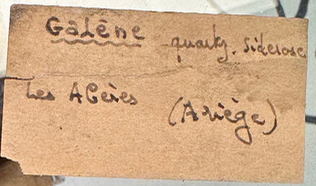 Galène quartz. Siderose
Les Abères
(Ariège)